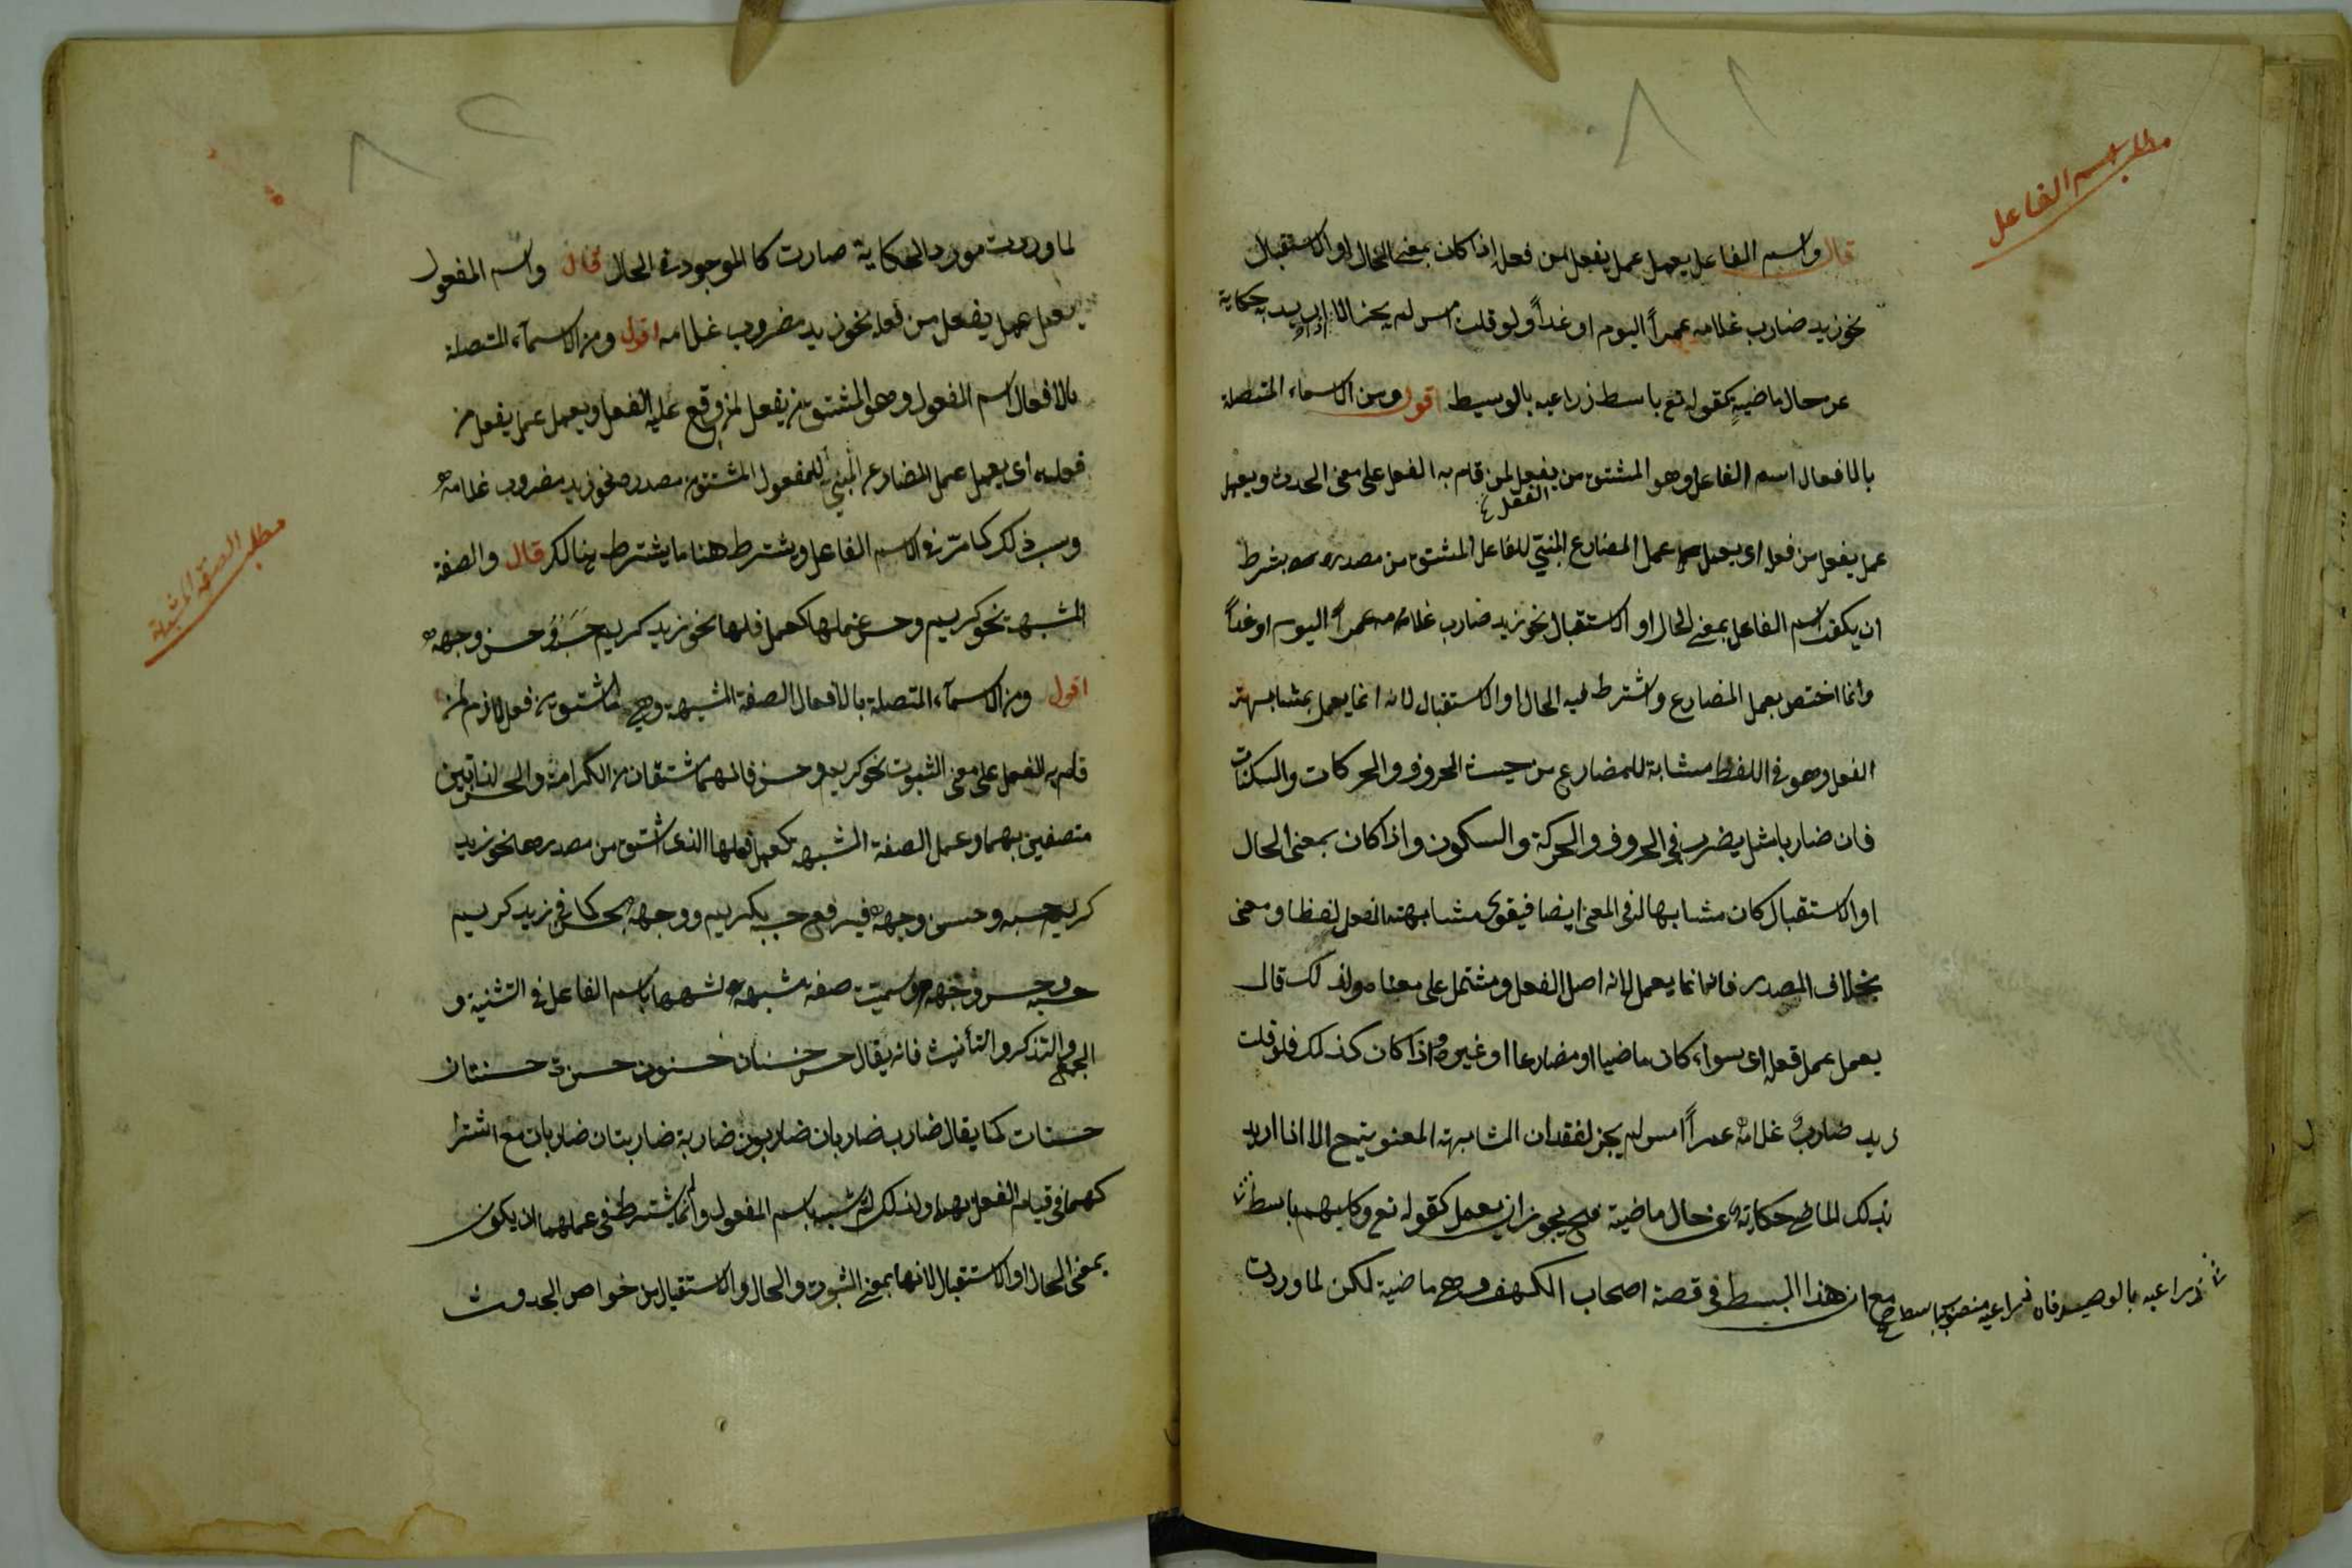 ٨١
مطلب اسم الفاعل
قال واسم الفاعل يعمل عمل يفعل من فعله اذا كان بمعنى الحال او الاستقبال
نحو زيد ضارب غلامه عمراً اليوم او غداً ولو قلت امس لم يجز الا اذا اريد به حكاية
عن حال ماضيةٍ كقوله تع باسط ذراعيه بالوسيط اقول ومن الاسماء المتصلة
بالافعال اسم الفاعل وهو المشتق من يفعل لمن قام به الفعل على معنى الحدوث ويعمل
الفعل
عمل يفعل من فعله اى يعمل عمل المضارع المبنيّ للفاعل المشتق من مصدره بشرط
ان يكون اسم الفاعل بمعنى الحال او الاستقبال نحو زيد ضارب غلامه عمراً اليوم او غداً
وانما اختص بعمل المضارع واشترط فيه الحال او الاستقبال لانه انما يعمل بمشابهته
الفعل وهو فى اللفظ مشابة للمضارع من حيث الحروف والحركات والسكنات
فان ضاربا مثل يضرب فى الحروف والحركة والسكون واذا كان بمعنى الحال
او الاستقبال كان مشابها له فى المعنى ايضا فيقوى مشابهته الفعل لفظا ومعنى
بخلاف المصدر فانه انما يعمل لانه اصل الفعل ومشتمل على معناه ولذلك قال
يعمل عمل فعله اى سواء كان ماضيا او مضارعا او غيره واذا كان كذلك فلو قلت
زيد ضاربٌ غلامه عمراً امس لم يجز لفقدان المشابهته المعنويتح الا اذا اريد
بذلك الماضى حكاية عن حال ماضية فح يجوز ان يعمل كقوله تع وكلبهم باسط
ذراعيه بالوصيد فان ذراعيه منصوب بباسط صح
مع ان هذا البسط فى قصة اصحاب الكهف وهى ماضية لكن لما وردت
٨٢
لما وردت مورد الحكاية صارت كالموجودة الحال قال واسم المفعول
يعمل عمل يفعل من فعله نحو زيد مضروب غلامه اقول ومن الاسمآء المتصلة
بالافعال اسم المفعول وهو المشتق من يفعل لمن وقع عليه الفعل ويعمل عمل يفعل من
فعله اى يعمل عمل المضارع المبنيّ للمفعول المشتق من مصدره نحو زيد مضروب غلامه
وسبب ذلك كما مر فى الاسم الفاعل ويشترط هنا ما يشترط هنالك قال والصفة
مطلب الصفة المشبهة
المشبهة نحو كريم وحسن عملها كعمل فعلها نحو زيد كريم حَسَبُهُ وحسن وجهه
اقول ومن الاسمآء المتصلة بالافعال الصفة المشبهة وهى ما اشتق من فعل لازم لمن
قام به الفعل على معنى الثبوت نحو كريم وحسن فانهما مشتقان من الكرامة والحسن لذاتين
متصفين بهما وعمل الصفة المشبهة كعمل فعلها الذى اشتق من مصدرها نحو زيد
كريم حسبه وحسن وجهه فيرفع حسبه بكريم ووجهه بحسن كما فى زيد كريم
حسبه وحسن وجهه وسميت صفة مشبهة لشبهها باسم الفاعل فى التثنية و
الجمع والتذكر والتأنيث فانه يقال حسن حسنان حسنون حسنة حسنتان
حسنات كما يقال ضارب ضاربان ضاربون ضاربة ضاربتان ضاربات مع اشترا
كهما فى قيام الفعل بهما ولذلك لم تشبه باسم المفعول وانما لم يشترط فى عملها ان يكون
بمعنى الحال او الاستقبال لانها بمعنى الثبوت والحال والاستقبال من خواص الحدوث